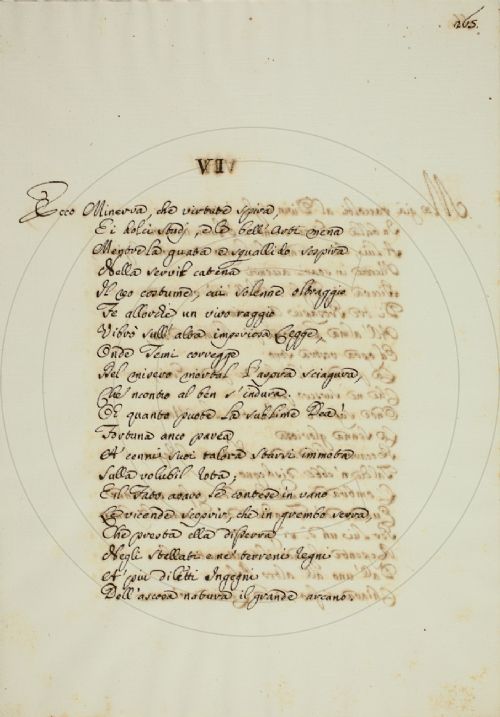 265.
VII
Ecco Minerva, che virtute spira,
E i dolci studj, e le bell'Arti mena
Mentre la guata e squallido sospira
Nella servil catena
Il reo costume, cui solenne oltraggio
Fe allorchè un vivo raggio
Vibrò sull' alba imperiosa Legge,
Onde Temi corregge
Nel misero mortal l'aspra sciagura,
Che 'ncontro al ben s'indura.
Oh quanto puote la sublime Dea!
Fortuna anco parea
A' cenni suoi talora starsi immota
Sulla volubil rota;
E il Fato avaro le contese in vano
Le vicende scoprir, che in grembo serra,
Che presta ella disserra
Negli stellati e ne' terreni Regni
A' più diletti Ingegni
Dell'ascosa natura il grande arcano.